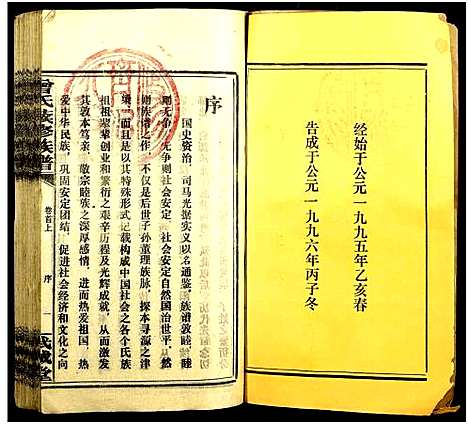 经始于公元一九九五年乙亥春
告成于公元一九九六年丙子冬
序
国史资治，司马光据实义以名通鉴，族谱敦睦，睦
则无争，无争则社会安定，社会安定自然国治世平，从而
则族谱之作，不仅是后世子孙董理族脉，探本寻源之津
梁，而且是以其特殊形式记载构成中国社会之各个氏族
祖宗辈辈创业和繁衍之艰辛历程及光辉成就，从而激发
其敦本笃亲，敬宗睦族之深厚感情，进而热爱祖国，热
爱中华民族，巩固安定团结，促进社会经济和文化之向
曾氏族修族谱
卷首上
序
一
武城堂